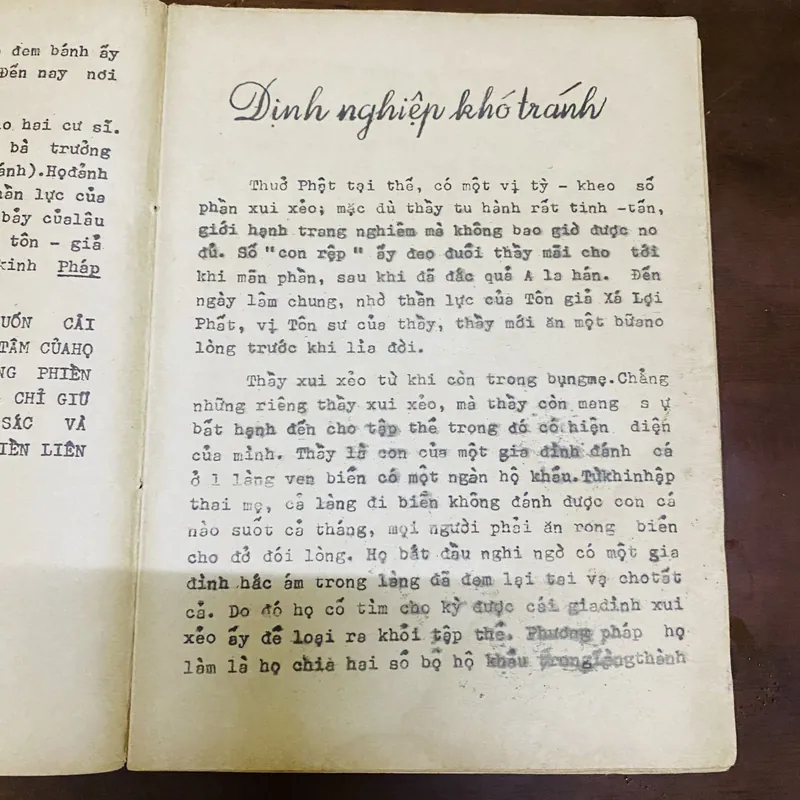 đem bánh ấy
Đến nay nơi
hai cư sĩ.
bà trưởng
ánh).Họđảnh
thần lực của
bảy củalâu
tôn - giả
kinh Pháp
UỐN CẢI
TÂM CỦAHỌ
NG PHIỀN
CHỈ GIỮ
SÁC VÀ
IỀN LIÊN
Định nghiệp khó tránh
Thuở Phật tại thế, có một vị tỳ - kheo số
phần xui xẻo; mặc dù thầy tu hành rất tinh -tấn,
giới hạnh trang nghiêm mà không bao giờ được no
đủ. Số "con rệp" ấy đeo đuổi thầy mãi cho tới
khi mãn phần, sau khi đã đắc quả A la hán. Đến
ngày lâm chung, nhờ thần lực của Tôn giả Xá Lợi
Phất, vị Tôn sư của thầy, thầy mới ăn một bữano
lòng trước khi lìa đời.
Thầy xui xẻo từ khi còn trong bụngmẹ.Chẳng
những riêng thầy xui xẻo, mà thầy còn mang sự
bất hạnh đến cho tập thể trong đó có hiện diện
của mình. Thầy là con của một gia đình đánh cá
ở 1 làng ven biển có một ngàn hộ khẩu.Từkhinhập
thai mẹ, cả làng đi biển không đánh được con cá
nào suốt cả tháng, mọi người phải ăn rong biển
cho đở đói lòng. Họ bắt đầu nghi ngờ có một gia
đình hắc ám trong làng đã đem lại tai vạ chotất
cả. Do đó họ cố tìm cho kỳ được cái giađình xui
xẻo ấy để loại ra khỏi tập thể. Phương pháp họ
làm là họ chia hai số bộ hộ khẩu tronglàngthành